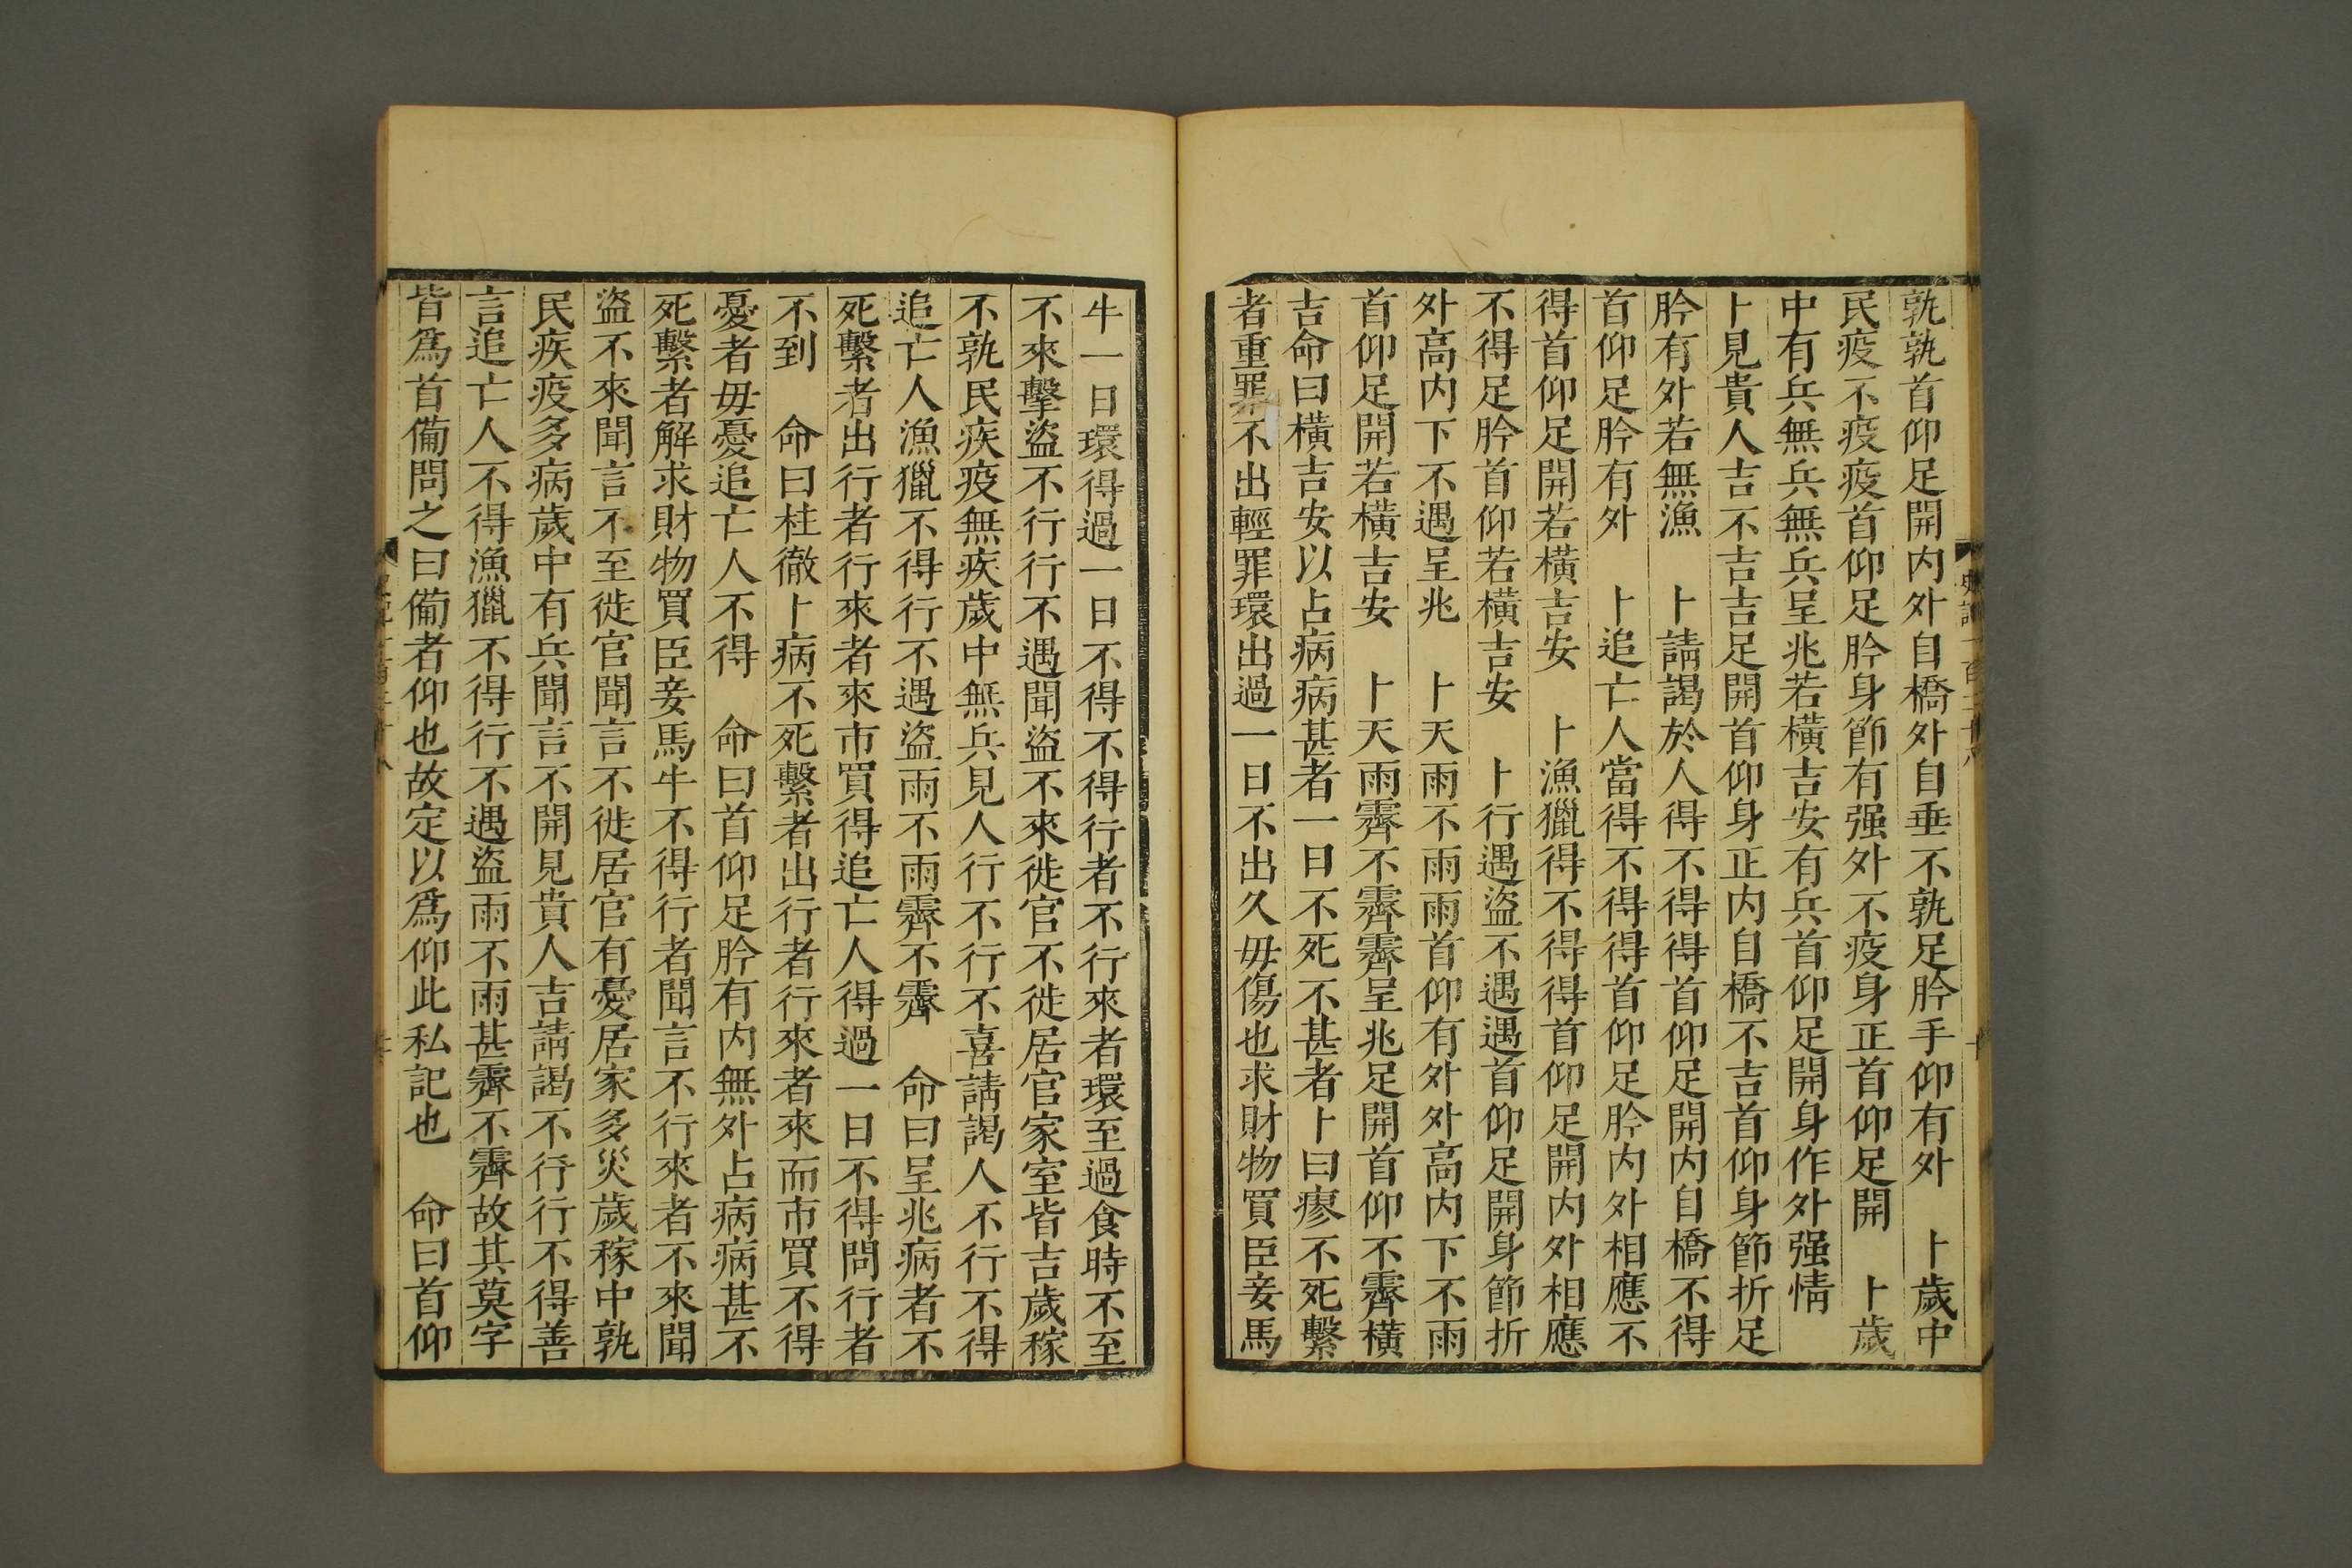 孰孰首仰足開内外自橋外自垂不孰足肣手仰有外　卜歲中
民疫不疫疫首仰足肣身節有强外不疫身正首仰足開　卜歲
中有兵無兵無兵呈兆若橫吉安有兵首仰足開身作外强情
卜見貴人吉不吉吉足開首仰身正内自橋不吉首仰身節折足
肣有外若無漁　卜請謁於人得不得得首仰足開内自橋不得
首仰足肣有外　卜追亡人當得不得得首仰足肣内外相應不
得首仰足開若橫吉安　卜漁獵得不得得首仰足開内外相應
不得足肣首仰若橫吉安　卜行遇盜不遇遇首仰足開身節折
外高内下不遇呈兆　卜天雨不雨雨首仰有外外高内下不雨
首仰足開若橫吉安　卜天雨霽不霽霽呈兆足開首仰不霽橫
吉命曰橫吉安以占病病甚者一日不死不甚者卜曰瘳不死繫
者重罪不出輕罪環出過一日不出久毋傷也求財物買臣妾馬
史記一百二十八
十
牛一日環得過一日不得不得行者不行來者環至過食時不至
不來擊盜不行行不遇聞盜不來徙官不徙居官家室皆吉歲稼
不孰民疾疫無疾歲中無兵見人行不行不喜請謁人不行不得
追亡人漁獵不得行不遇盜雨不雨霽不霽　命曰呈兆病者不
死繫者出行者行來者來市買得追亡人得過一日不得問行者
不到　命曰柱徹卜病不死繫者出行者行來者來而市買不得
憂者毋憂追亡人不得　命曰首仰足肣有内無外占病病甚不
死繫者解求財物買臣妾馬牛不得行者聞言不行來者不來聞
盜不來聞言不至徙官聞言不徙居官有憂居家多災歲稼中孰
民疾疫多病歲中有兵聞言不開見貴人吉請謁不行行不得善
言追亡人不得漁獵不得行不遇盜雨不雨甚霽不霽故其莫字
皆爲首僃問之曰僃者仰也故定以爲仰此私記也　命曰首仰